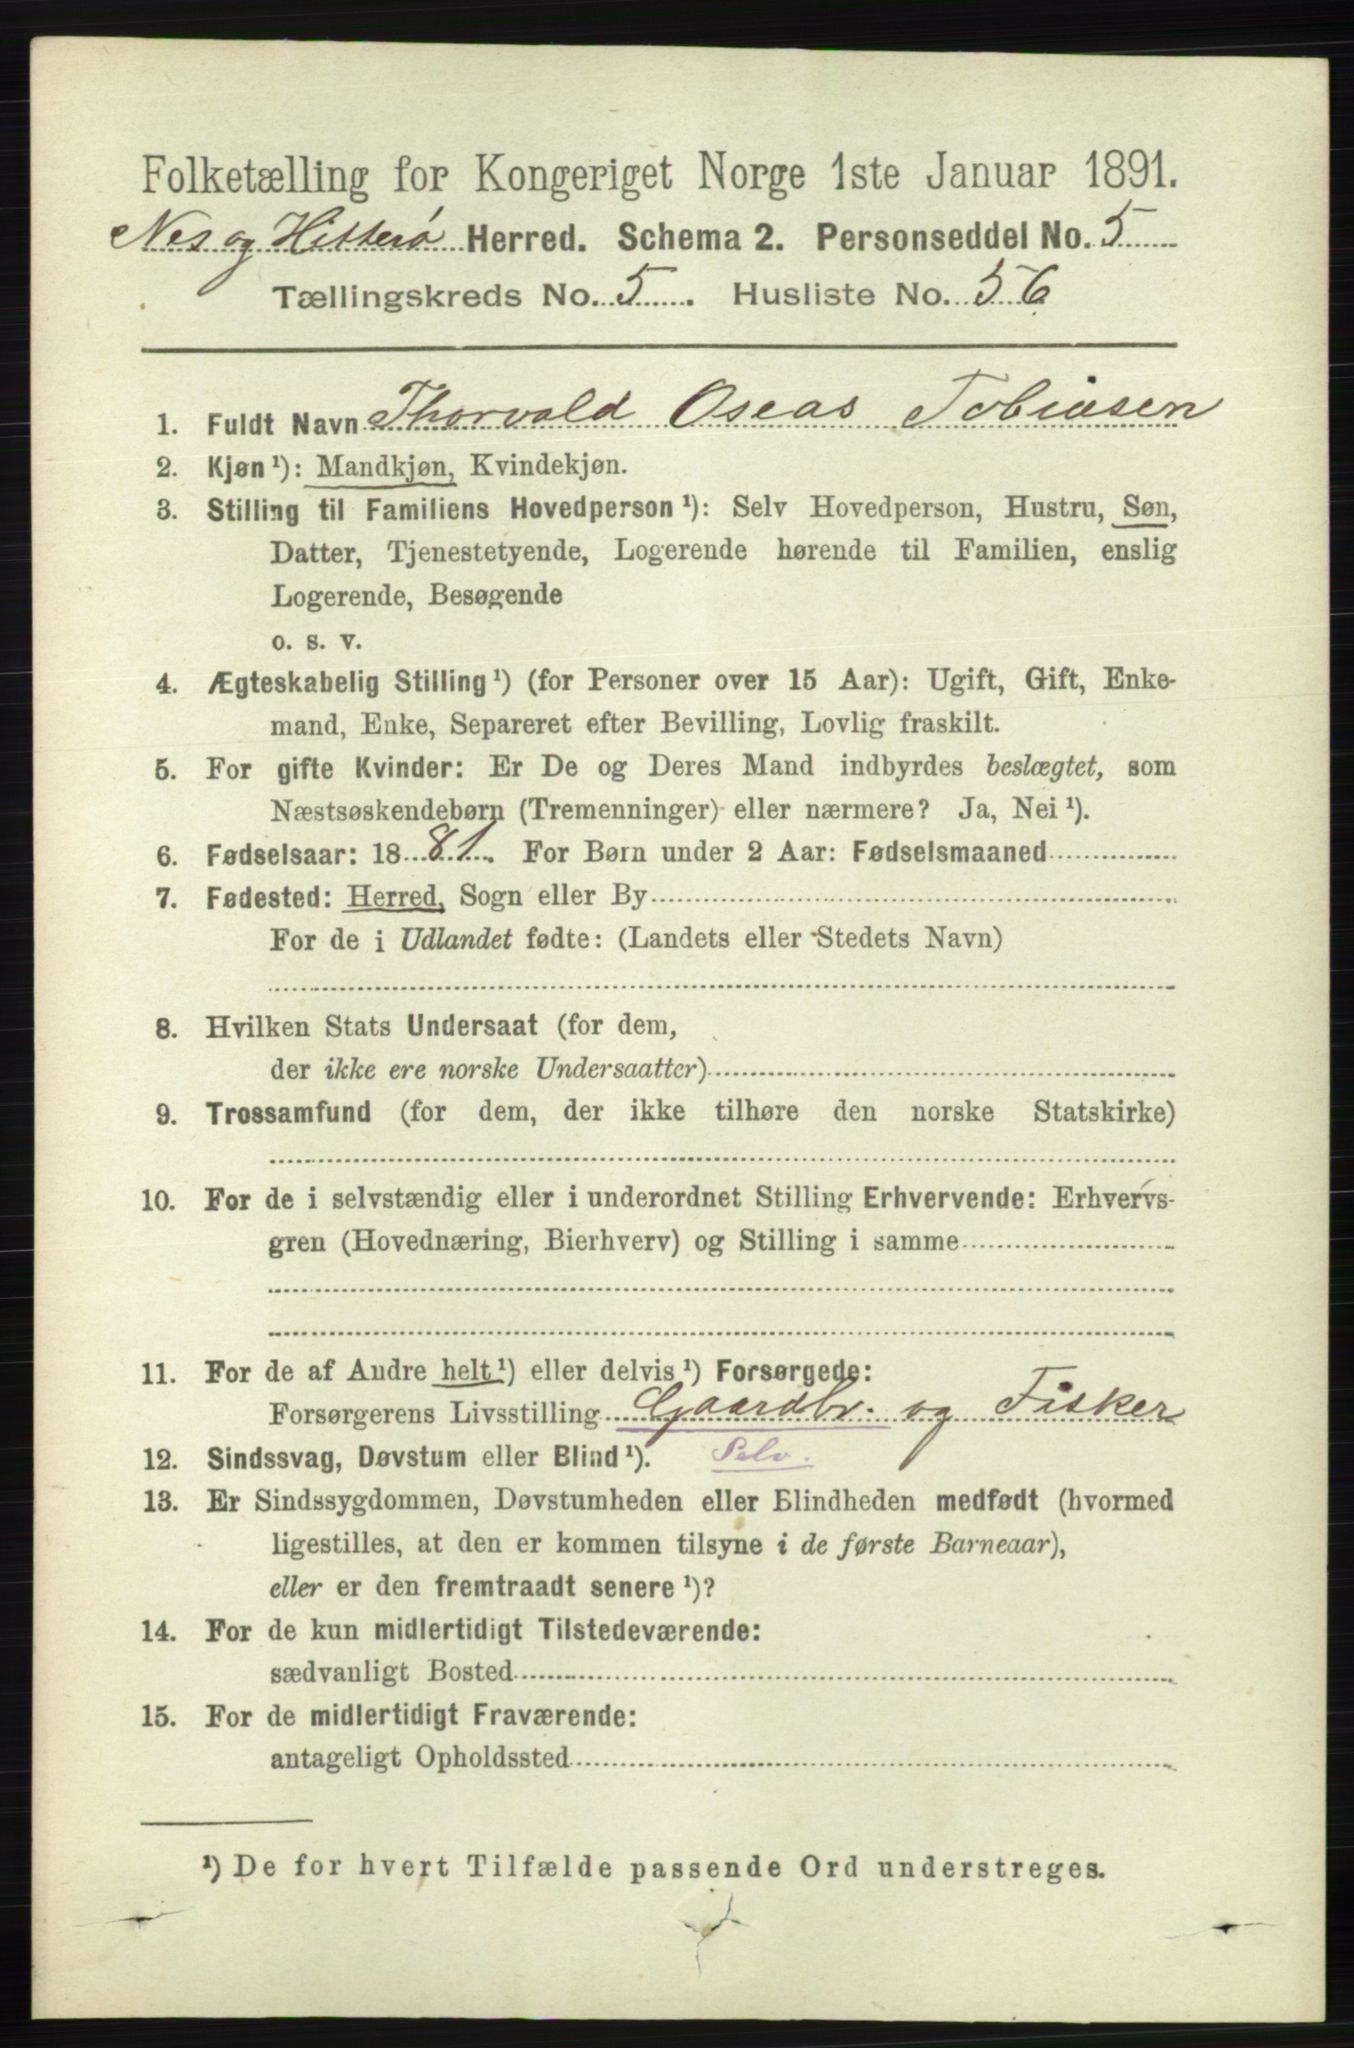 Folketælling for Kongeriget Norge 1ste Januar 1891.
Nes og Hitterø Herred. Schema 2. Personseddel No. 5
Tællingskreds No. 5. Husliste No. 56
1. Fuldt Navn Thorvald Oseas Tobiasen
2. Kjøn ¹): Mandkjøn, Kvindekjøn.
3. Stilling til Familiens Hovedperson ¹): Selv Hovedperson, Hustru, Søn,
Datter, Tjenestetyende, Logerende hørende til Familien, enslig
Logerende, Besøgende
o. s. v.
4. Ægteskabelig Stilling ¹) (for Personer over 15 Aar): Ugift, Gift, Enke-
mand, Enke, Separeret efter Bevilling, Lovlig fraskilt.
5. For gifte Kvinder: Er De og Deres Mand indbyrdes beslægtet, som
Næstsøskendebørn (Tremenninger) eller nærmere? Ja, Nei ¹).
6. Fødselsaar: 1881. For Børn under 2 Aar: Fødselsmaaned
7. Fødested: Herred, Sogn eller By
For de i Udlandet fødte: (Landets eller Stedets Navn)
8. Hvilken Stats Undersaat (for dem,
der ikke ere norske Undersaatter)
9. Trossamfund (for dem, der ikke tilhøre den norske Statskirke)
10. For de i selvstændig eller i underordnet Stilling Erhvervende: Erhvervs-
gren (Hovednæring, Bierhverv) og Stilling i samme
11. For de af Andre helt ¹) eller delvis ¹) Forsørgede:
Forsørgerens Livsstilling Gaardbr. og Fisker
12. Sindssvag, Døvstum eller Blind ¹). Selv.
13. Er Sindssygdommen, Døvstumheden eller Blindheden medfødt (hvormed
ligestilles, at den er kommen tilsyne i de første Barneaar),
eller er den fremtraadt senere ¹)?
14. For de kun midlertidigt Tilstedeværende:
sædvanligt Bosted
15. For de midlertidigt Fraværende:
antageligt Opholdssted
¹) De for hvert Tilfælde passende Ord understreges.